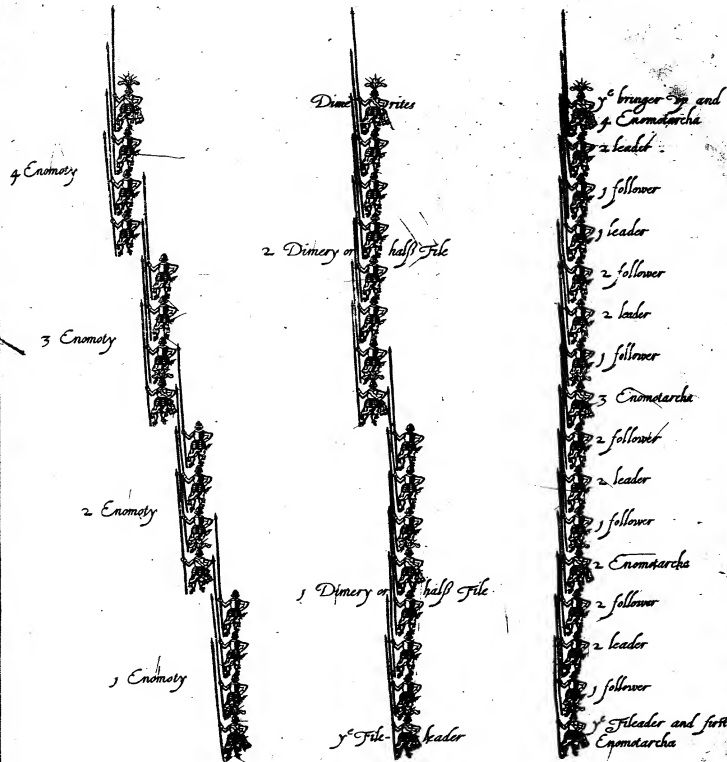 4 Enomoty
3 Enomoty
2 Enomoty
1 Enomoty
Dime rites
2 Dimery or half File
1 Dimery or half File
yͤ File-leader
yͤ bringer vp and
4 Enomotarcha
2 leader
1 follower
1 leader
2 follower
2 leader
1 follower
3 Enomotarcha
2 follower
2 leader
1 follower
2 Enomotarcha
2 follower
2 leader
1 follower
yͤ Fileader and first
Enomotarcha